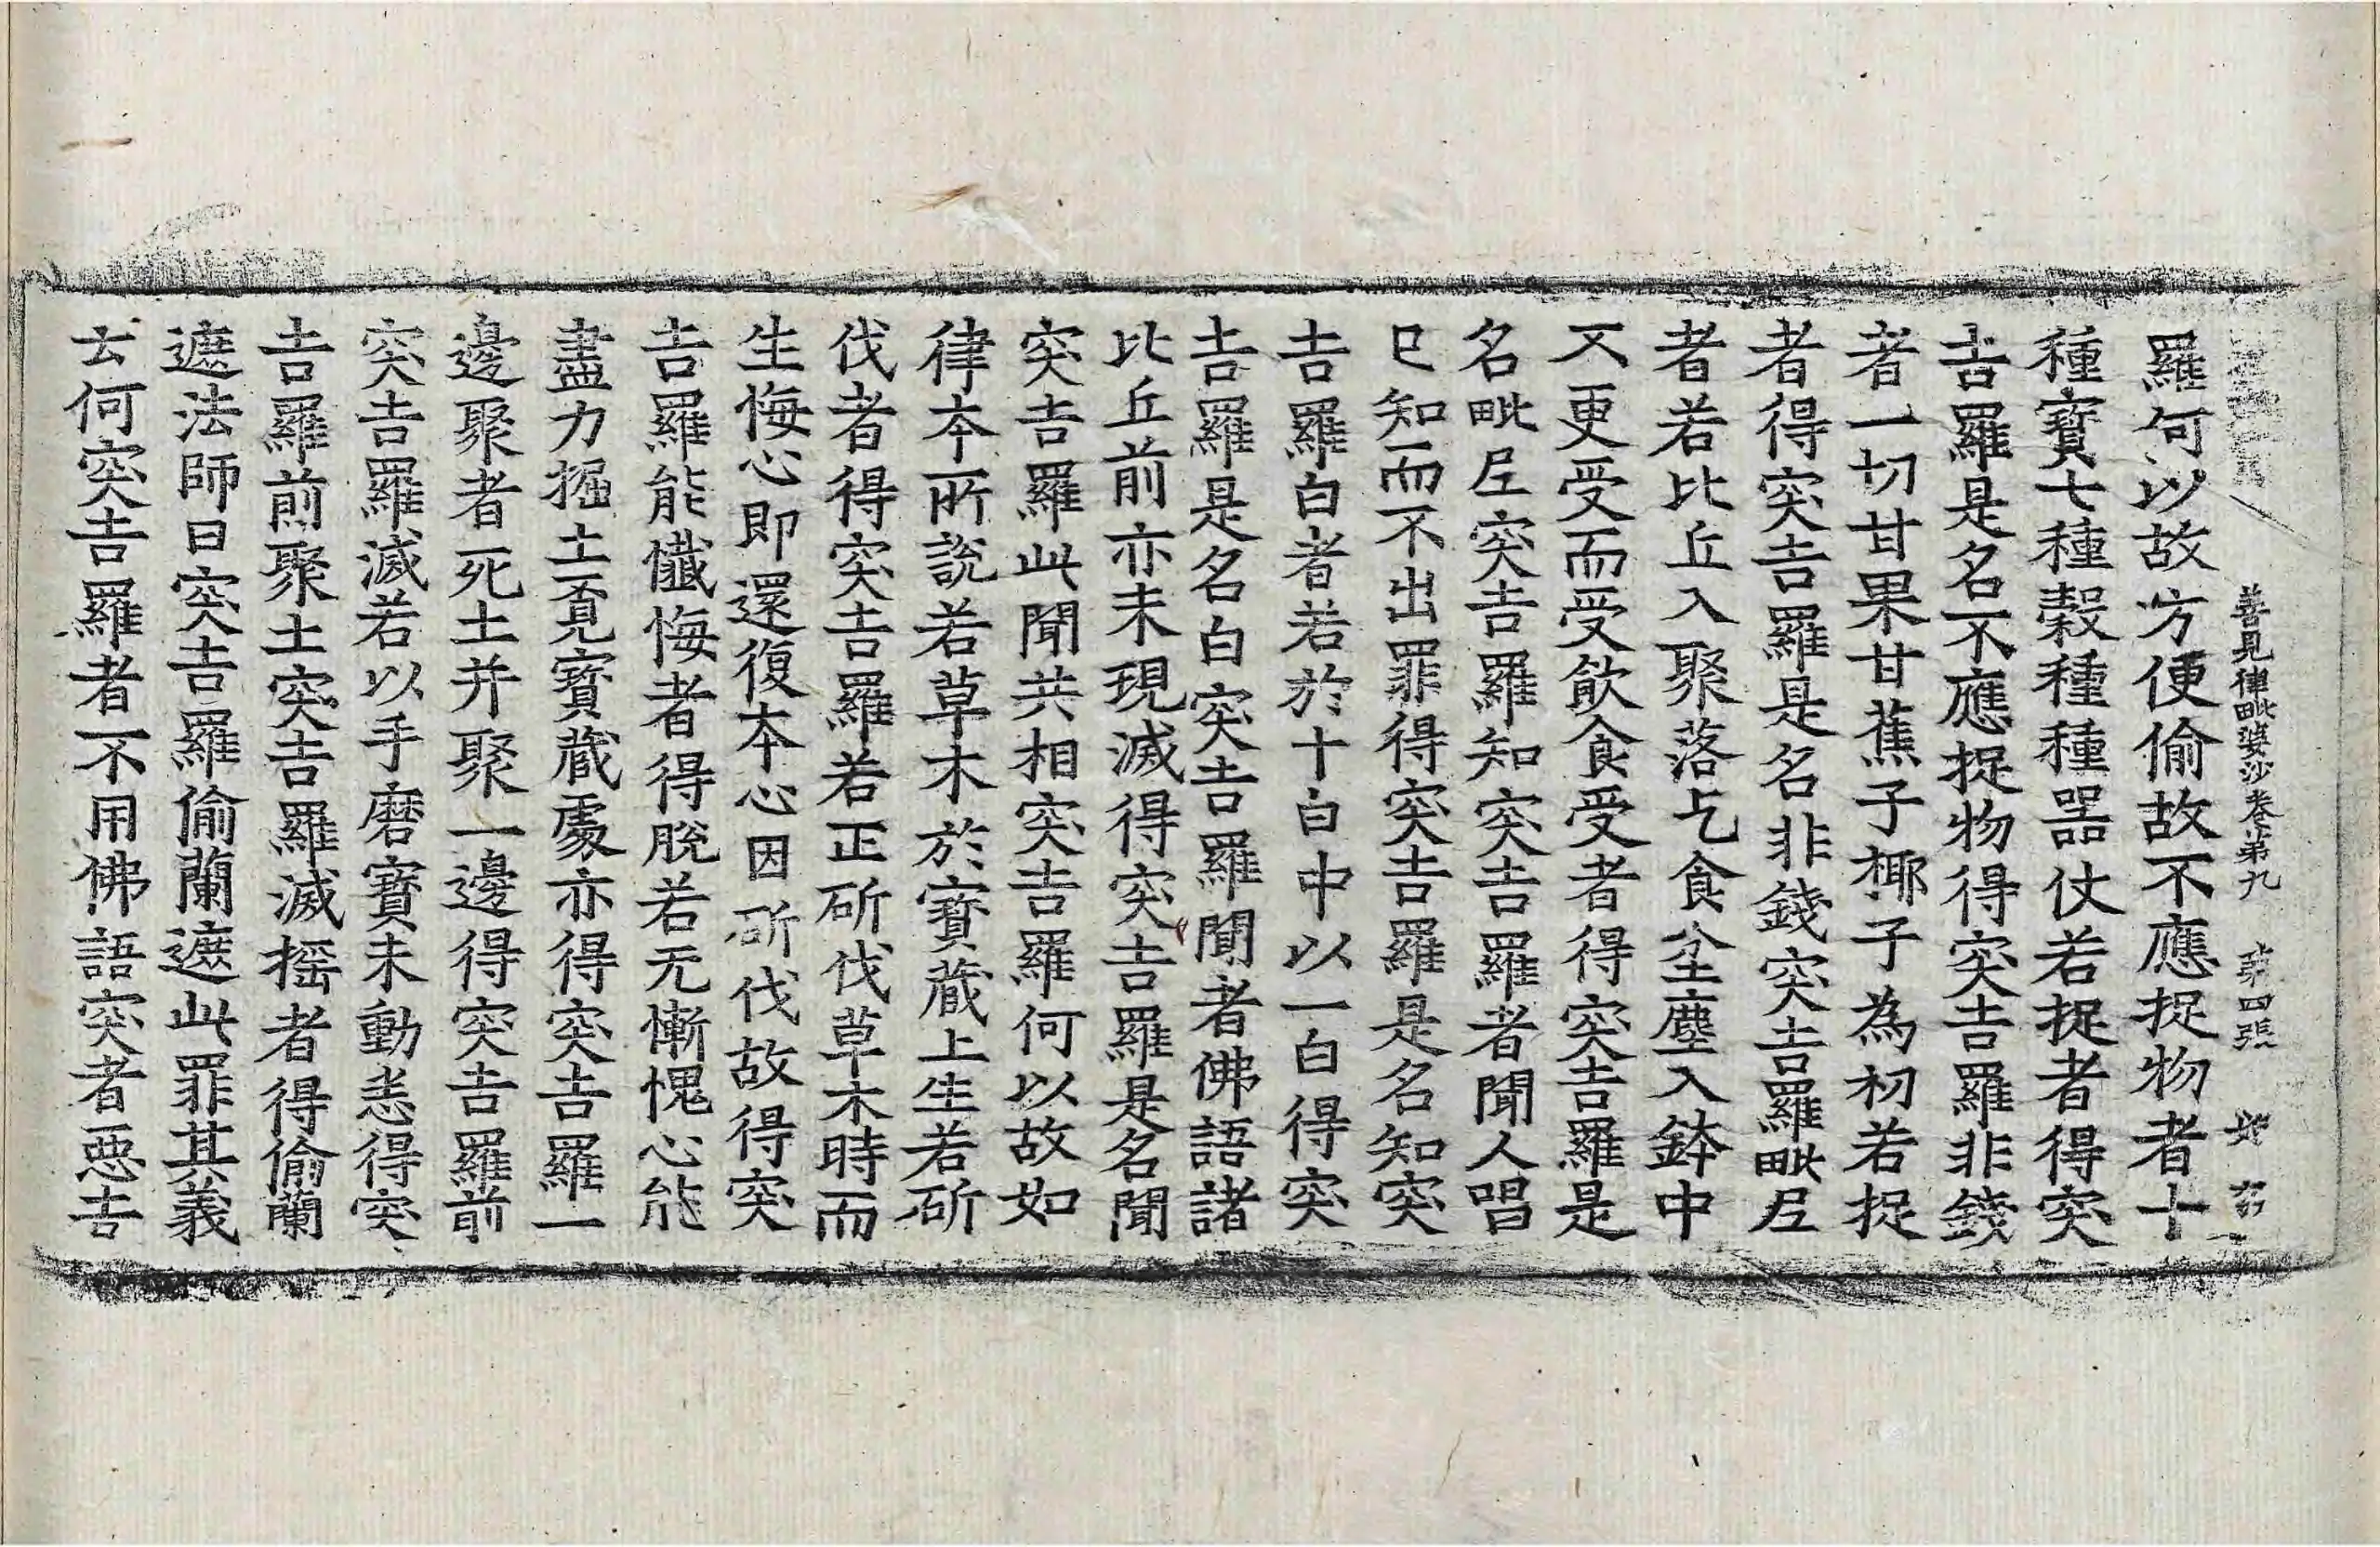 善見律毗婆沙卷第九　第四張
羅何以故方便偷故不應捉物者十
種寶七種穀種種器仗若捉者得突
吉羅是名不應捉物得突吉羅非錢
者一切甘果甘蕉子椰子為初若捉
者得突吉羅是名非錢突吉羅毗尼
者若比丘入聚落乞食坌塵入鉢中
不更受而受飲食受者得突吉羅是
名毗尼突吉羅知突吉羅者聞人唱
已知而不出罪得突吉羅是名知突
吉羅白者若於十白中以一白得突
吉羅是名白突吉羅聞者佛語諸
比丘前亦未現滅得突吉羅是名聞
突吉羅此聞共相突吉羅何以故如
律本所說若草木於寶藏上生若斫
伐者得突吉羅若正斫伐草木時而
生悔心即還復本心因斫伐故得突
吉羅能懺悔者得脫若无慚愧心能
盡力掘土覓寶藏處亦得突吉羅一
邊聚者死土并聚一邊得突吉羅前
突吉羅滅若以手磨寶未動恙得突
吉羅前聚土突吉羅滅搖者得偷蘭
遮法師曰突吉羅偷蘭遮此罪其義
云何突吉羅者不用佛語突者惡吉